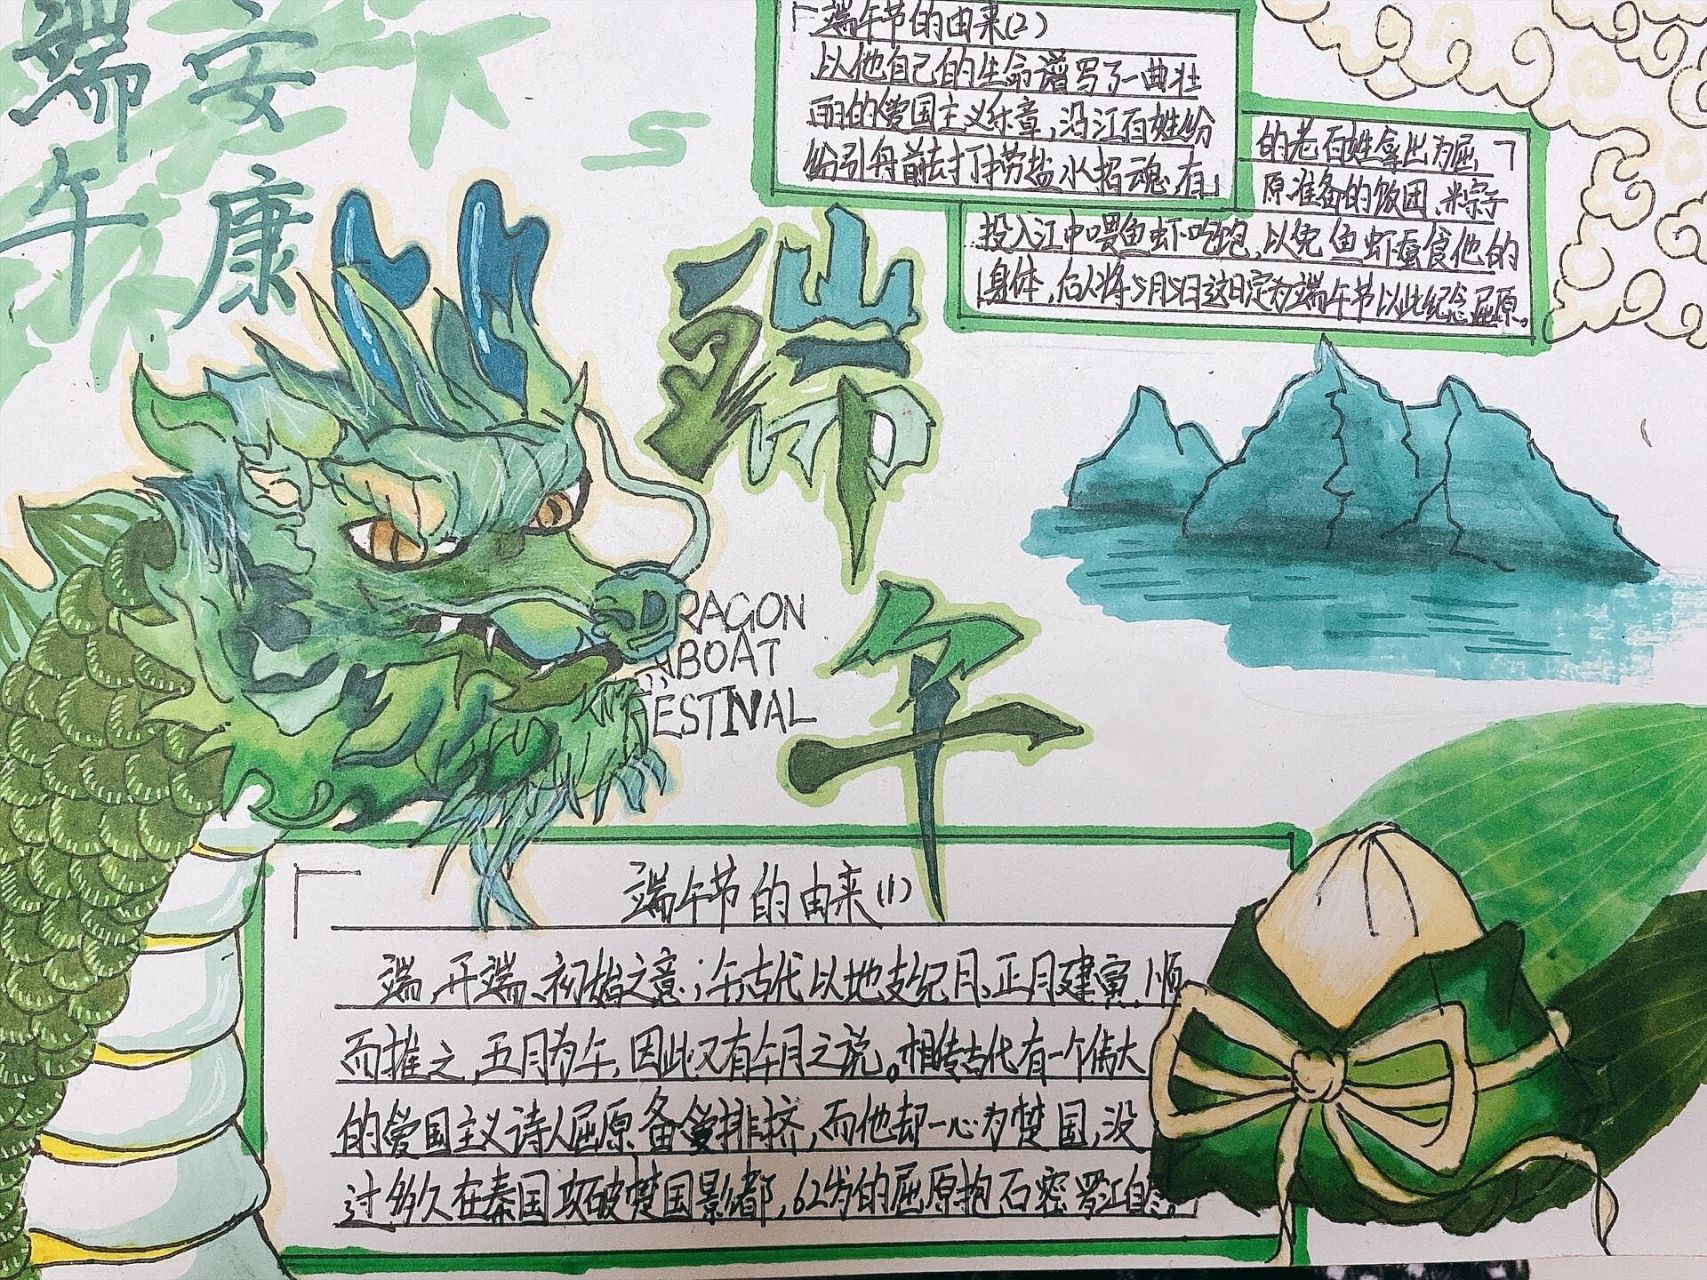 端午
安康
端午节的由来(2)
以他自己的生命谱写了一曲壮
丽的爱国主义乐章,沿江百姓纷
纷引舟前去打捞盐水招魂,有
的老百姓拿出为屈
原准备的饭团、米粽子
投入江中喂鱼虾吃饱,以免鱼虾蚕食他的
身体,后人将5月5日这日定为端午节以此纪念屈原。
端午
DRAGON
BOAT
FESTIVAL
端午节的由来(1)
端,开端、初始之意;午,古代以地支纪月,正月建寅,顺
而推之,五月为午,因此又有午月之说。相传古代有一个伟大
的爱国主义诗人屈原备受排挤,而他却一心为楚国,没
过多久在秦国攻破楚国影都,62岁的屈原抱石密罗江自